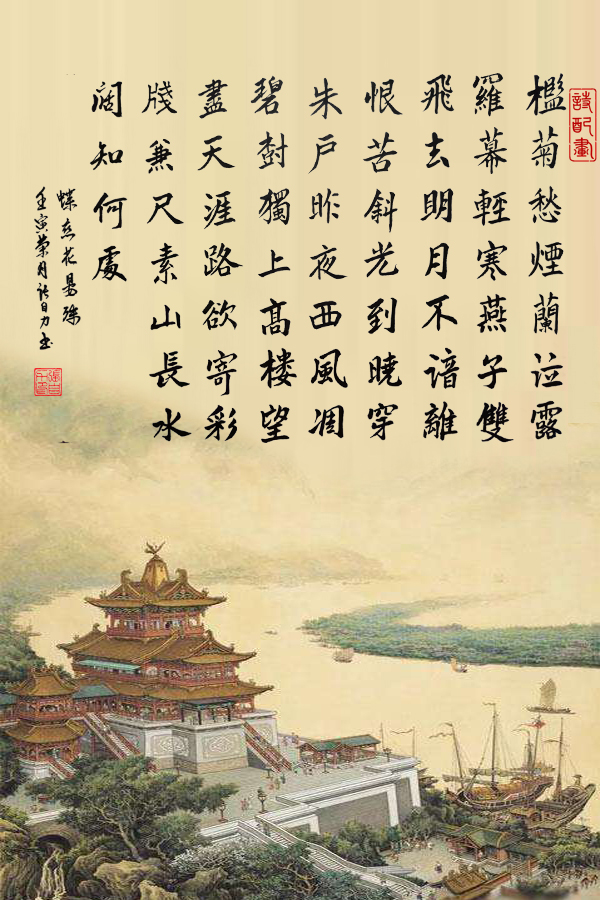 詩配畫
檻菊愁煙蘭泣露
羅幕輕寒燕子雙
飛去明月不諳離
恨苦斜光到曉穿
朱戶昨夜西風凋
碧樹獨上高楼望
盡天涯路欲寄彩
牋兼尺素山長水
闊知何處
蝶恋花晏殊
壬寅荣月